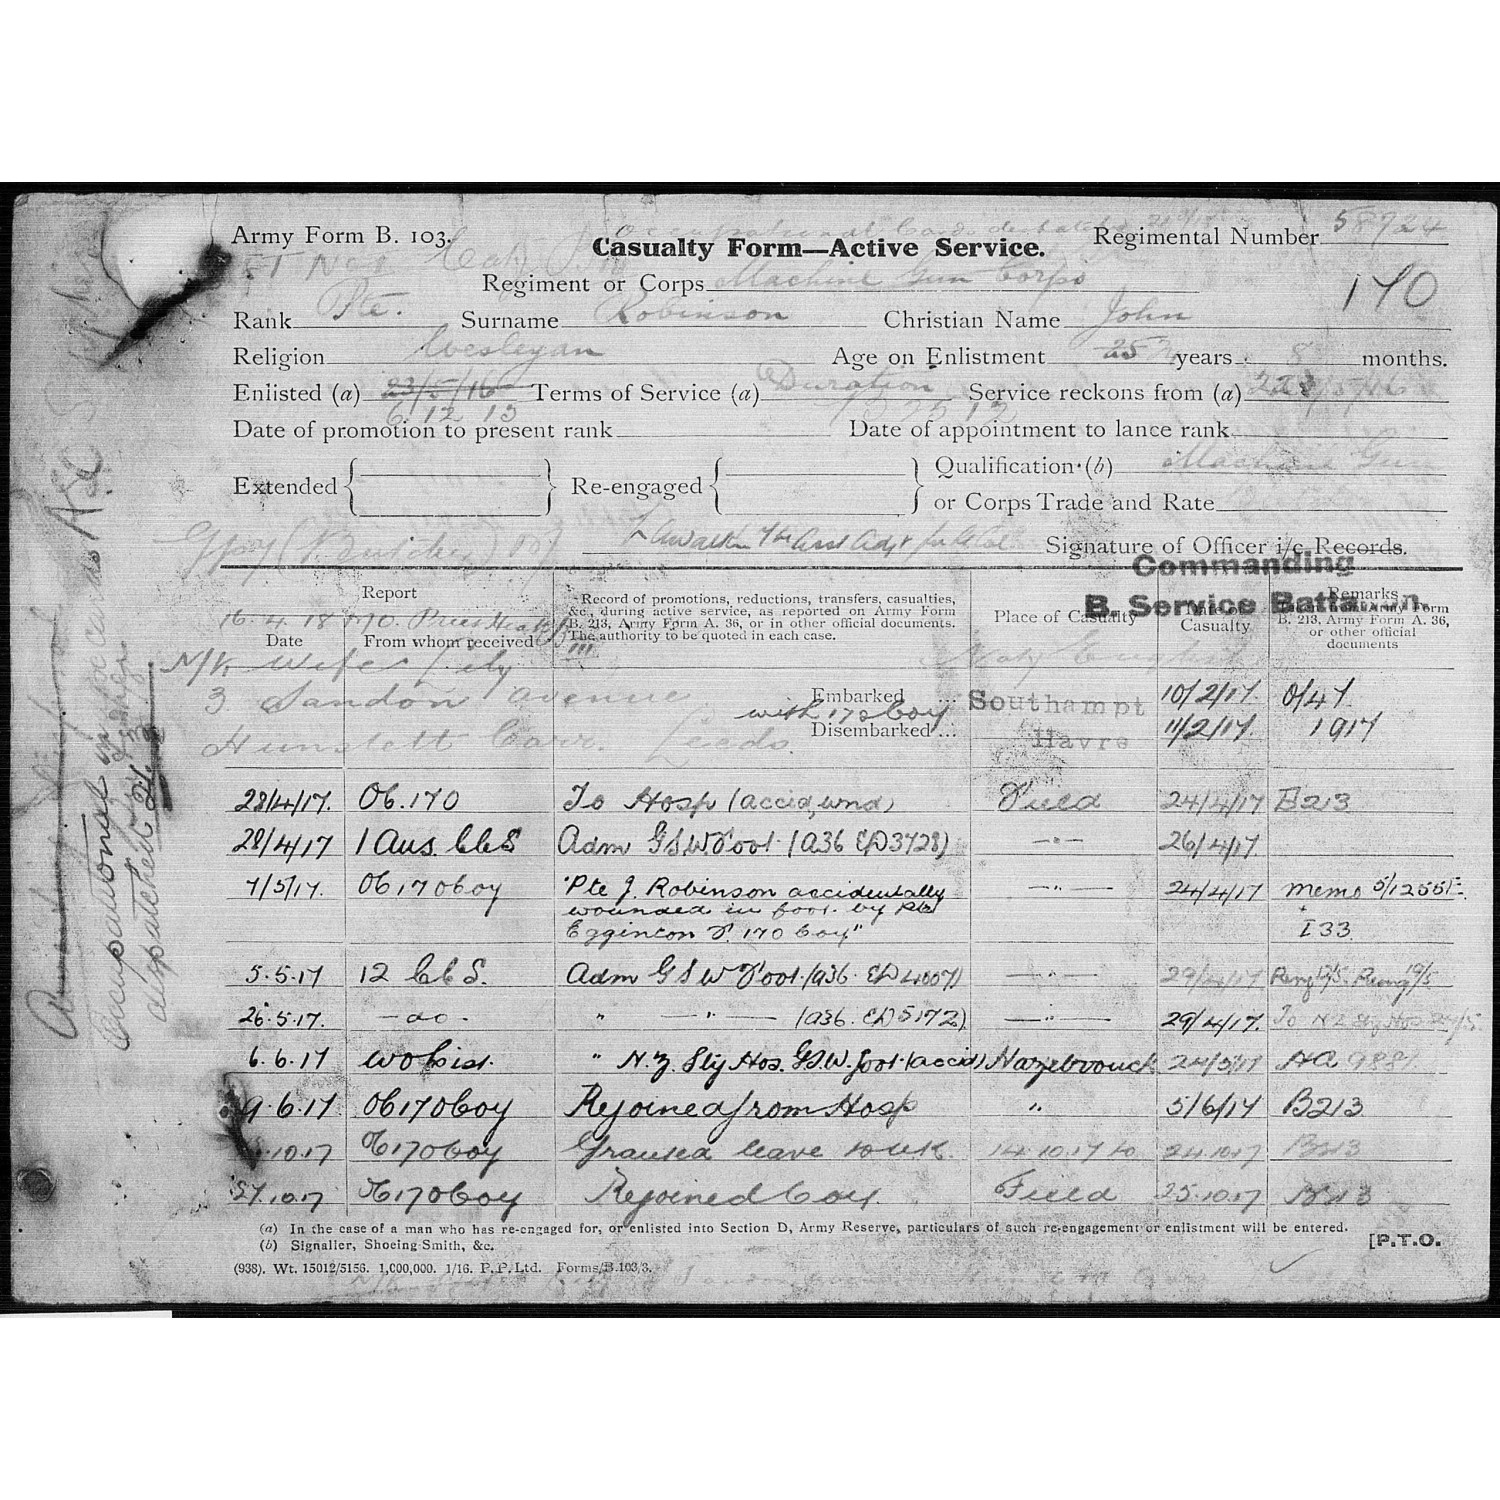 Army Form B. 103.
Casualty Form—Active Service.
Regimental Number 58724
Regiment or Corps Machine Gun Corps
170
Rank Pte. Surname Robinson Christian Name John
Religion Wesleyan Age on Enlistment 25 years 8 months.
Enlisted (a) 23/5/16 Terms of Service (a) Duration Service reckons from (a)
6 12 15
Date of promotion to present rank Date of appointment to lance rank
Extended Re-engaged Qualification (b) Machine Gun
or Corps Trade and Rate
Signature of Officer i/c Records.
Commanding
B. Service Battalion.
Report
Date From whom received
Record of promotions, reductions, transfers, casualties, &c., during active service, as reported on Army Form B. 213, Army Form A. 36, or in other official documents. The authority to be quoted in each case.
Place of Casualty
Date of Casualty
Remarks
taken from Army Form B. 213, Army Form A. 36, or other official documents
16.4.18
N/K Wife Lily
3 Sandon avenue
Hunslett Carr. Leeds.
Embarked ... Southampt 10/2/17. 0/47
with 170 Coy
Disembarked... Havre 11/2/17. 1917
28/4/17. OC.170 To Hosp (accid, wnd) Field 24/4/17 B213
28/4/17 1 Aus. CCS Adm GSW Foot (A36 ED3728) —"— 26/4/17
7/5/17. OC 170 Coy "Pte J. Robinson accidentally —"— 24/4/17 memo 5/1255E.
wounded in foot by Pte +
Egginton F. 170 Coy" I 33.
5.5.17 12 CCS. Adm GSW Foot (A36 ED4007) —"— 29/4/17
26.5.17. —do— " —"— (A36. ED5172) —"— 29/4/17. To N Z Sty Hos 24/5
6.6.17 " N.Z. Sty Hos. GSW. foot (accid) Hazebrouck 24/5/17
9.6.17 OC 170 Coy Rejoined from Hosp " 5/6/17 B213
.10.17 OC 170 Coy Granted leave to UK. 14.10.17 to 24.10.17 B213
27.10.17 OC 170 Coy Rejoined Coy. Field 25.10.17 B213
(a) In the case of a man who has re-engaged for, or enlisted into Section D, Army Reserve, particulars of such re-engagement or enlistment will be entered.
(b) Signaller, Shoeing Smith, &c.
[P.T.O.
(938). Wt. 15012/5156. 1,000,000. 1/16. P.P.Ltd. Forms/B.103/3.